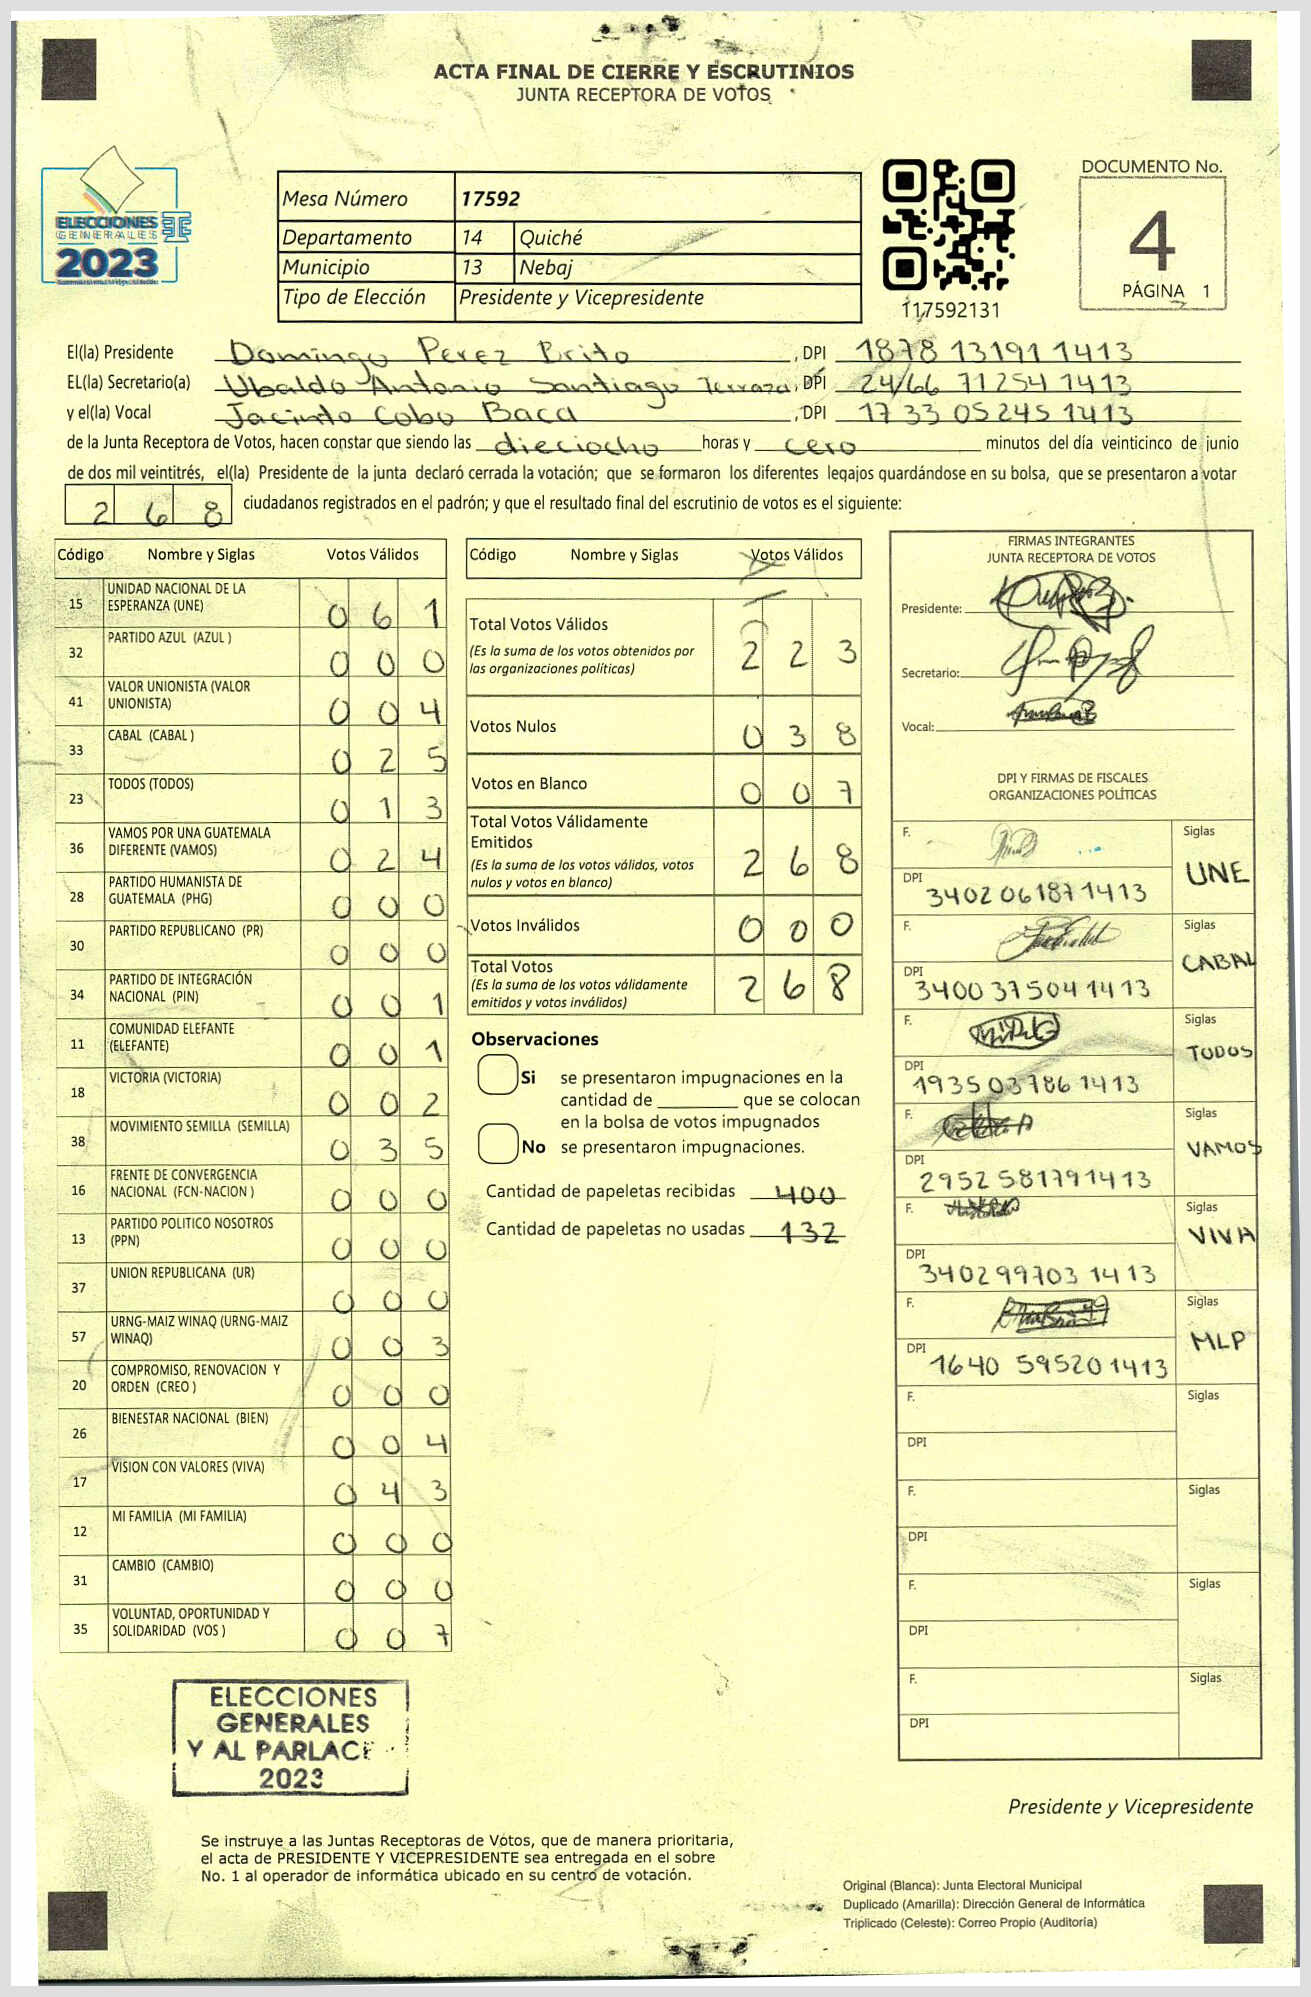 ACTA FINAL DE CIERRE Y ESCRUTINIOS
JUNTA RECEPTORA DE VOTOS
ELECCIONES
GENERALES
2023
Mesa Número 17592
Departamento 14 Quiché
Municipio 13 Nebaj
Tipo de Elección Presidente y Vicepresidente
117592131
DOCUMENTO No.
4
PÁGINA 1
El(la) Presidente Domingo Perez Brito, DPI 1878 13191 1413
EL(la) Secretario(a) Ubaldo Antonio Santiago Terraza, DPI 24166 71254 1413
y el(la) Vocal Jacinto Cobo Baca, DPI 1733 05245 1413
de la Junta Receptora de Votos, hacen constar que siendo las dieciocho horas y cero minutos del día veinticinco de junio
de dos mil veintitrés, el(la) Presidente de la junta declaró cerrada la votación; que se formaron los diferentes legajos guardándose en su bolsa, que se presentaron a votar
268 ciudadanos registrados en el padrón; y que el resultado final del escrutinio de votos es el siguiente:
Código Nombre y Siglas Votos Válidos
15 UNIDAD NACIONAL DE LA ESPERANZA (UNE) 061
32 PARTIDO AZUL (AZUL ) 000
41 VALOR UNIONISTA (VALOR UNIONISTA) 004
33 CABAL (CABAL ) 025
23 TODOS (TODOS) 013
36 VAMOS POR UNA GUATEMALA DIFERENTE (VAMOS) 024
28 PARTIDO HUMANISTA DE GUATEMALA (PHG) 000
30 PARTIDO REPUBLICANO (PR) 000
34 PARTIDO DE INTEGRACIÓN NACIONAL (PIN) 001
11 COMUNIDAD ELEFANTE (ELEFANTE) 001
18 VICTORIA (VICTORIA) 002
38 MOVIMIENTO SEMILLA (SEMILLA) 035
16 FRENTE DE CONVERGENCIA NACIONAL (FCN-NACION ) 000
13 PARTIDO POLITICO NOSOTROS (PPN) 000
37 UNION REPUBLICANA (UR) 000
57 URNG-MAIZ WINAQ (URNG-MAIZ WINAQ) 003
20 COMPROMISO, RENOVACION Y ORDEN (CREO ) 000
26 BIENESTAR NACIONAL (BIEN) 004
17 VISION CON VALORES (VIVA) 043
12 MI FAMILIA (MI FAMILIA) 000
31 CAMBIO (CAMBIO) 000
35 VOLUNTAD, OPORTUNIDAD Y SOLIDARIDAD (VOS ) 007
Código Nombre y Siglas Votos Válidos
Total Votos Válidos 223
(Es la suma de los votos obtenidos por
las organizaciones políticas)
Votos Nulos 038
Votos en Blanco 007
Total Votos Válidamente
Emitidos 268
(Es la suma de los votos válidos, votos
nulos y votos en blanco)
Votos Inválidos 000
Total Votos 268
(Es la suma de los votos válidamente
emitidos y votos inválidos)
Observaciones
Si se presentaron impugnaciones en la
cantidad de ________ que se colocan
en la bolsa de votos impugnados
No se presentaron impugnaciones.
Cantidad de papeletas recibidas 400
Cantidad de papeletas no usadas 132
FIRMAS INTEGRANTES
JUNTA RECEPTORA DE VOTOS
Presidente:
Secretario:
Vocal:
DPI Y FIRMAS DE FISCALES
ORGANIZACIONES POLÍTICAS
F. Siglas UNE
DPI 3402 06187 1413
F. Siglas CABAL
DPI 3400 37504 1413
F. Siglas TODOS
DPI 1935 03786 1413
F. Siglas VAMOS
DPI 2952 58179 1413
F. Siglas VIVA
DPI 3402 99703 1413
F. Siglas MLP
DPI 1640 59520 1413
F. Siglas
DPI
F. Siglas
DPI
F. Siglas
DPI
F. Siglas
DPI
ELECCIONES
GENERALES
Y AL PARLACE
2023
Presidente y Vicepresidente
Se instruye a las Juntas Receptoras de Votos, que de manera prioritaria,
el acta de PRESIDENTE Y VICEPRESIDENTE sea entregada en el sobre
No. 1 al operador de informática ubicado en su centro de votación.
Original (Blanca): Junta Electoral Municipal
Duplicado (Amarilla): Dirección General de Informática
Triplicado (Celeste): Correo Propio (Auditoría)